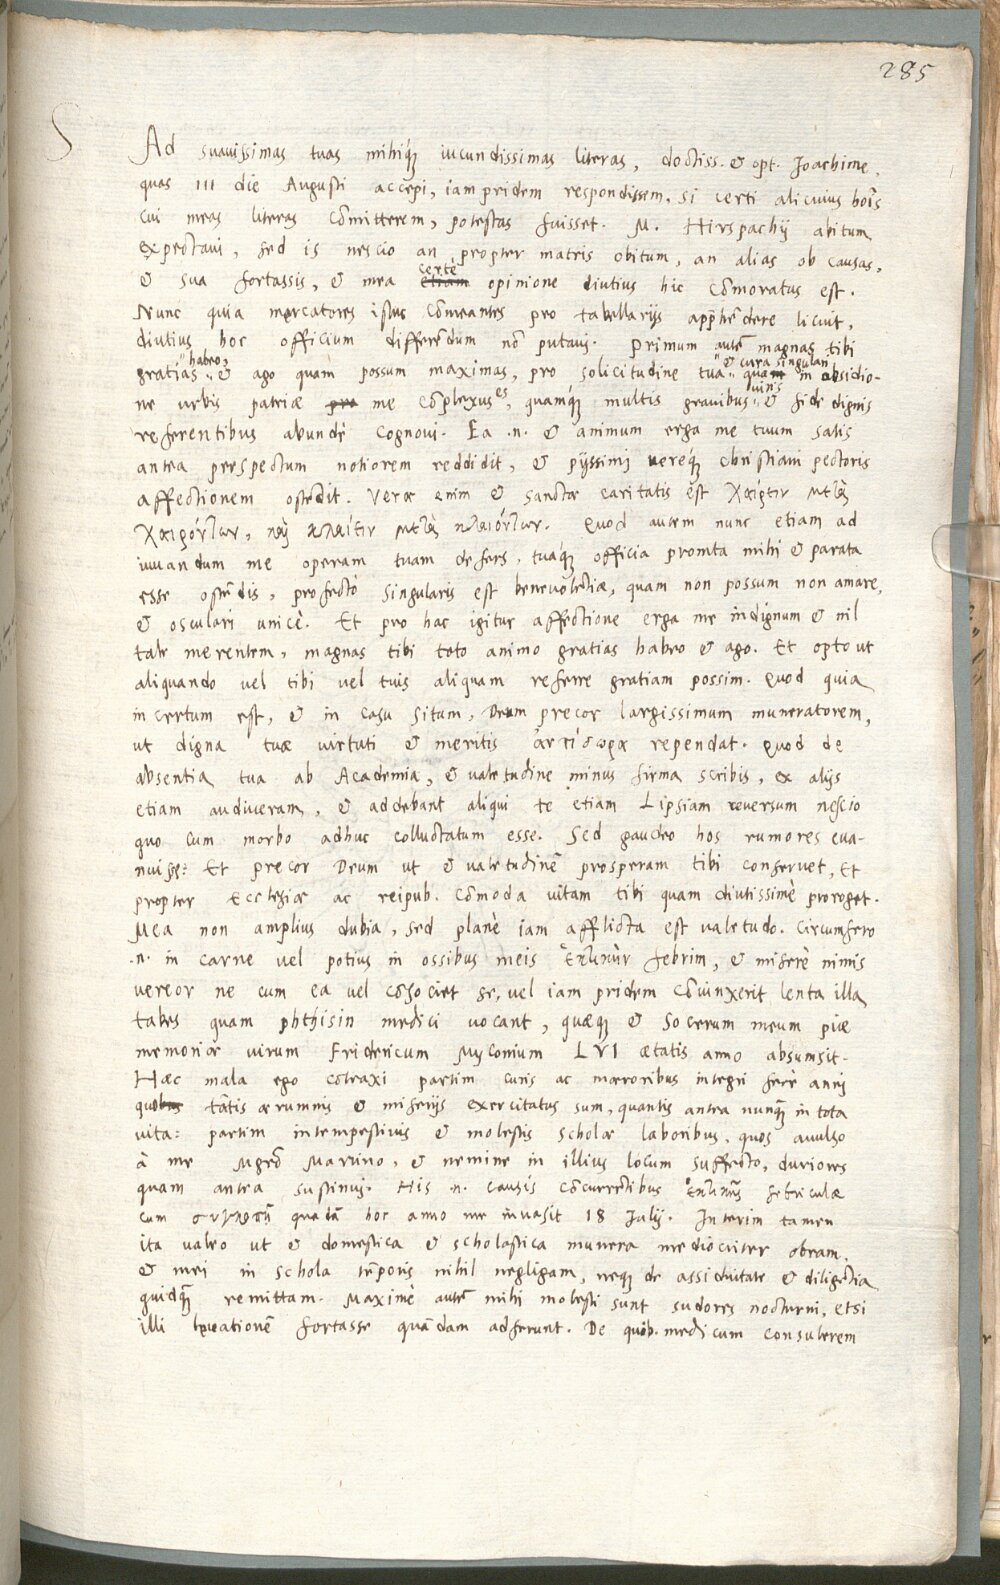 285
S
Ad suauissimas tuas mihiq́; iucundissimas literas, doctiss. & opt. Joachime,
quas III die Augusti accepi, iam pridem respondissem, si certi alicuius hoīs
cui meas literas cōmitterem, potestas fuisset. M. Hirspachij abitum
expectaui, sed is nescio an propter matris obitum, an alias ob causas,
certè
& sua fortassis, & mea etiam opinione diutius hic cōmoratus est.
Nunc quia mercatores istuc cōmeantes pro tabellarijs apprēhēdere licuit,
diutius hoc officium differēdum nō putaui. Primum autē magnas tibi
habeo, & cura singulari
gratias & ago quàm possum maximas, pro solicitudine tua quam in obsidio-
uiris
ne urbis patriæ pro me cōplexus es, quamq́; multis grauibus & fide dignis
referentibus abundè cognoui. Ea .n. & animum erga me tuum satis
antea perspectum notiorem reddidit, & pijssimi uereq́; christiani pectoris
affectionem ostēdit. Veræ enim & sanctæ caritatis est χαίρειν μετὰ
χαιρόντων, καὶ κλαίειν μετὰ κλαιόντων. Quod autem nunc etiam ad
iuuandum me operam tuam defers, tuaq́; officia promta mihi & parata
esse ostēdis, profectò singularis est beneuolētiæ, quam non possum non amare,
& osculari unicè. Et pro hac igitur affectione erga me indignum & nil
tale merentem, magnas tibi toto animo gratias habeo & ago. Et opto ut
aliquando uel tibi uel tuis aliquam referre gratiam possim. Quod quia
incertum est, & in casu situm, Deum precor largissimum muneratorem,
ut digna tuæ uirtuti & meritis ἀντίδωρα rependat. Quod de
absentia tua ab Academia, & ualetudine minus firma scribis, ex alijs
etiam audiueram, & addebant aliqui te etiam Lipsiam reuersum nescio
quo cum morbo adhuc colluctatum esse. Sed gaudeo hos rumores eua-
nuisse: Et precor Deum ut & ualetudinē prosperam tibi conseruet, Et
propter Ecclesiæ ac reipub. cōmoda uitam tibi quam diutissimè proroget.
Mea non amplius dubia, sed planè iam afflicta est ualetudo. Circumfero
.n. in carne uel potius in ossibus meis ἑκτικὴν febrim, & miserè nimis
uereor ne cum ea uel cōsociet se, uel iam pridem cōiunxerit lenta illa
tabes quam phthisin medici uocant, quæq; & socerum meum piæ
memoriæ uirum Fridericum Myconium LVI ætatis anno absumsit.
Hæc mala ego cōtraxi partim curis ac mœroribus integri ferè anni
quo tātis ærumnis & miserijs exercitatus sum, quantis antea nunq̄; in tota
uita: partim intempestiuis & molestis scholæ laboribus, quos auulso
à me Mgrō Martino, & nemine in illius locum suffecto, duriores
quam antea sustinui. His .n. causis cōcurrētibus ἑκτικῆς febriculæ
cum συγκοπῇ quadā hoc anno me inuasit 18 Julij. Interim tamen
ita ualeo ut & domestica & scholastica munera mediocriter obeam,
& mei in schola tēporis nihil negligam, neq; de assiduitate & diligētia
quidq̄; remittam. Maximè autē mihi molesti sunt sudores nocturni, etsi
illi leuationē fortasse quādam adferunt. De quib. medicum consulerem